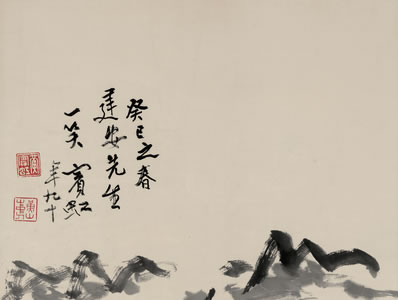 癸巳之春
蓮安先生
一笑 賓虹
年九十